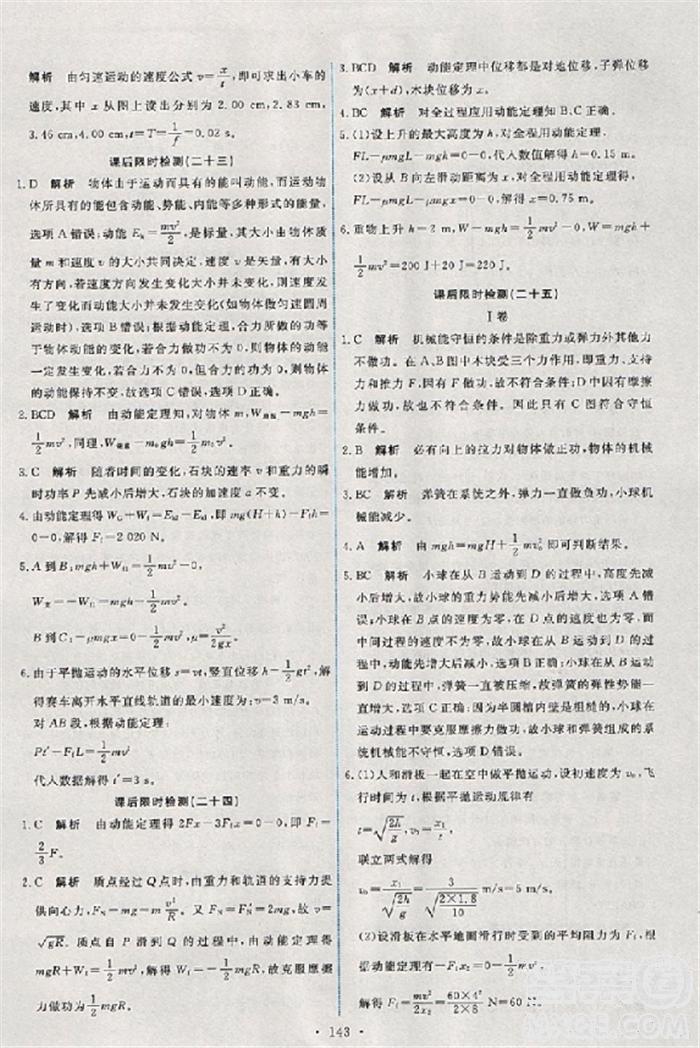 解析 由匀速运动的速度公式 v=x/t,即可求出小车的
速度,其中 x 从图上读出分别为 2.00 cm,2.83 cm,
3.46 cm,4.00 cm,t=T=1/f=0.02 s。
课后限时检测(二十三)
1. D 解析 物体由于运动而具有的能叫动能,而运动物
体所具有的能包含动能、势能、内能等多种形式的能量,
选项 A 错误;动能 Ek=mv²/2,是标量,其大小由物体质
量与速度的大小共同决定,速度 v 是矢量,有大小还
有方向,若速度方向发生变化而大小并未发生变化,则
发生了变化而动能并没有发生变化(如物体做匀速圆周
运动时),选项 B 错误;根据动能定理,合力所做的功等
于物体动能的变化,若合力所做的功为零,则物体的动能
一定不发生变化,选项 D 正确;物体的合外力为零,则物体
的动能保持不变,故选项 C 错误。
2. BCD 解析 由动能定理知,对物体 m,
1/2mv²,同理,
3. C 解析 随着时间的变化,石块的速率 v 和重力的瞬
时功率 P 先减小后增大,石块的加速度 a 不变。
4. 由动能定理得 WG+Wf=Ek2-Ek1,即 mg(H+h)-Ffh=
0-0,解得 Ff=2 020 N。
5. A 到 B:mgh+Wf1=1/2mv²,
=-Wf1=mgh-1/2mv²。
B 到 C:-μmgs=0-1/2mv²,μ=v²/2gs。
6. 由于平抛运动的水平位移 s=vt,竖直位移 h=1/2gt²,得
解得赛车离开水平直线轨道的最小速度:v=3 m/s。
对 AB 段,根据动能定理:
Pt′-FfL=1/2mv²
代入数据解得 t′=3 s。
课后限时检测(二十四)
1. C 解析 由动能定理得 2Fx-3Ffx=0-0,即 Ff=
2/3F。
2. C 解析 质点经过 Q 点时,由重力和轨道的支持力提
供向心力,FN-mg=mv²/R。又 FN=2mg,故 v=
√gR。质点自 P 滑到 Q 的过程中,由动能定理得
mgR+Wf=1/2mv²,得 Wf=-1/2mgR,故克服摩擦
力做功为1/2mgR。
3. BCD 解析 动能定理中位移都是对地位移,子弹位移
为(x+d),木块位移为 x。
4. BC 解析 对全过程应用动能定理知 B、C 正确。
5. (1)设上升的最大高度为 h,对全程用动能定理:
FL-μmgL-mgh=0-0,代入数值解得 h=0.15 m。
(2)设从 B 向左滑动距离为 x,对全程用动能定理:
FL-μmgL-μmgx=0-0,解得 x=0.75 m。
6. 重物上升 h=2 m,W=mgh+1/2mv²=
1/2mv²=200 J+20 J=220 J。
课后限时检测(二十五)
Ⅰ卷
1. C 解析 机械能守恒的条件是除重力或弹力外其他力
不做功。在 A、B 图中木块受三个力作用,即重力、支持
力和推力 F,因有推力做功,不符合条件。D 中因有摩擦
力做功,故也不符合条件。因此 C 图符合守恒
条件。
2. B 解析 必有向上的拉力对物体做正功,物体的机械
能增加。
3. BC 解析 弹簧在系统之外,弹力一直做负功,小球机
械能减少。
4. A 解析 由 mgh=mgH+1/2mv₀² 即可判断结果。
5. BCD 解析 小球在从 B 运动到 D 的过程中,高度先减
小后增大,所以小球的重力势能先减小后增大,
选项 A 错误;小球在 B 点的速度为零,在 D 点的速度也为零,而
中间过程的速度不为零,所以小球从 B 点运动到 D 点过程中,
动能先增大后减小,选项 B 正确;小球从 B 点运动到 D
点过程中,弹簧一直被压缩,所以弹簧的弹性势能一
直增大,选项 C 正确;由于半圆槽内壁是粗糙的,小球在
运动过程中要克服摩擦力做功,所以小球和弹簧组成的
系统机械能不守恒,选项 D 错误。
6. (1)人和滑板一起在空中做平抛运动,设初速度为 v₀,飞
行时间为 t,根据平抛运动规律有
t=√(2h/g),v₀=x₁/t
联立两式解得
v₀=x₁/√(2h/g)=3/√(2×1.8/10) m/s=5 m/s
(2)设滑板在水平地面滑行时受到的平均阻力为 Ff,根
据动能定理有 -Ffx₂=0-1/2mv²
解得 Ff=mv²/2x₂=60×4²/(2×8) N=60 N。
· 143 ·